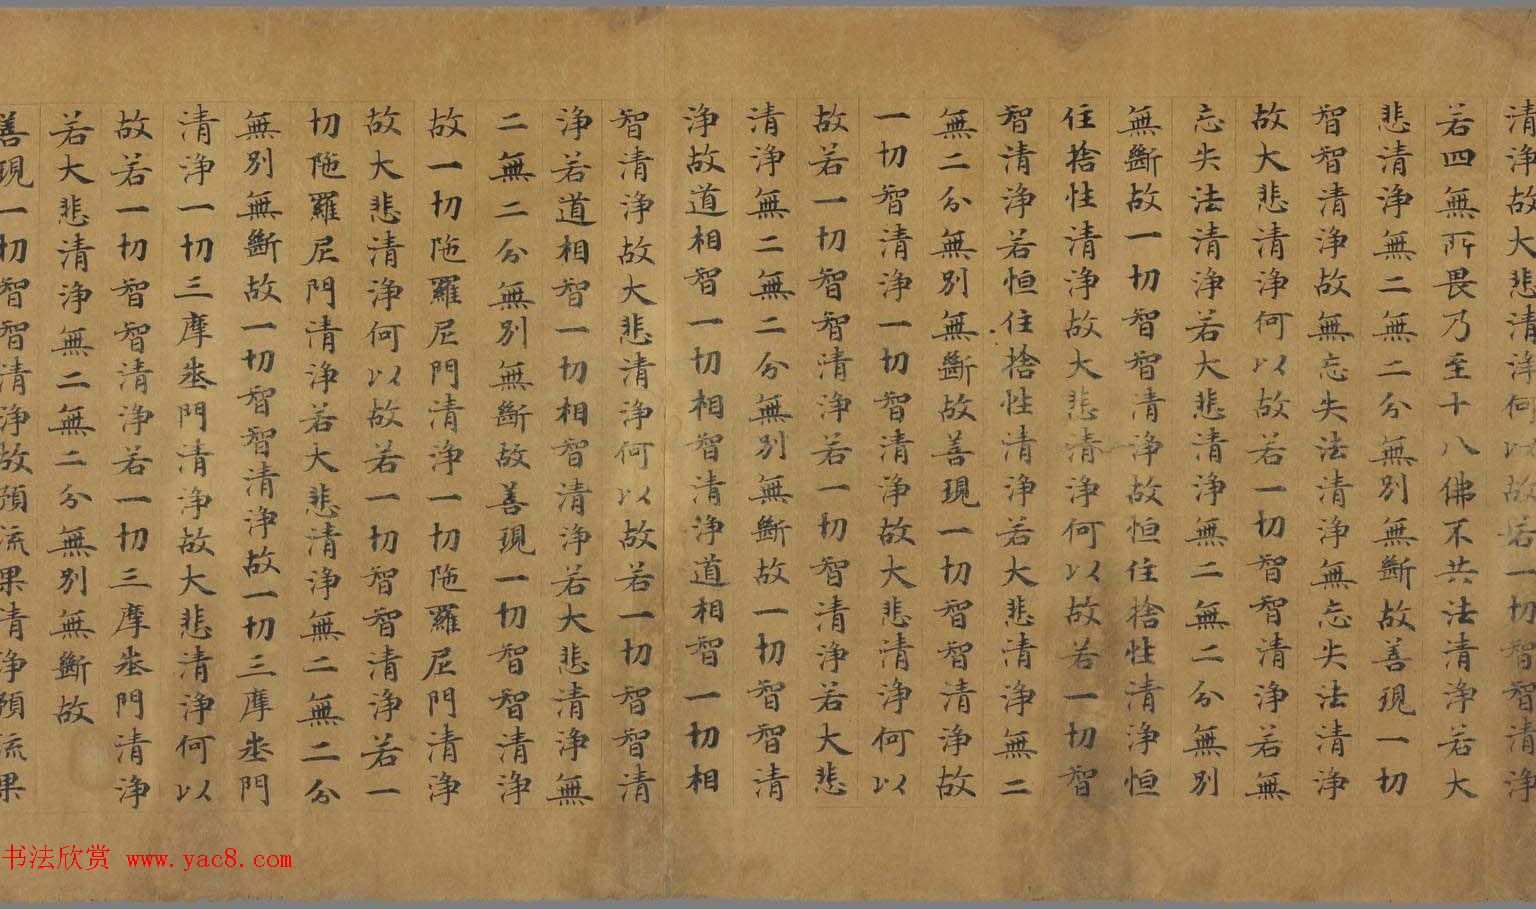 清淨故大悲清淨何以故若一切智智清淨
若四無所畏乃至十八佛不共法清淨若大
悲清淨無二無二分無別無斷故善現一切
智智清淨故無忘失法清淨無忘失法清淨
故大悲清淨何以故若一切智智清淨若無
忘失法清淨若大悲清淨無二無二分無別
無斷故一切智智清淨故恒住捨性清淨恒
住捨性清淨故大悲清淨何以故若一切智
智清淨若恒住捨性清淨若大悲清淨無二
無二分無別無斷故善現一切智智清淨故
一切智清淨一切智清淨故大悲清淨何以
故若一切智智清淨若一切智清淨若大悲
清淨無二無二分無別無斷故一切智智清
淨故道相智一切相智清淨道相智一切相
智清淨故大悲清淨何以故若一切智智清
淨若道相智一切相智清淨若大悲清淨無
二無二分無別無斷故善現一切智智清淨
故一切陁羅尼門清淨一切陁羅尼門清淨
故大悲清淨何以故若一切智智清淨若一
切陁羅尼門清淨若大悲清淨無二無二分
無別無斷故一切智智清淨故一切三摩地門
清淨一切三摩地門清淨故大悲清淨何以
故若一切智智清淨若一切三摩地門清淨
若大悲清淨無二無二分無別無斷故
善現一切智智清淨故預流果清淨預流果
书法欣赏 www.yac8.com